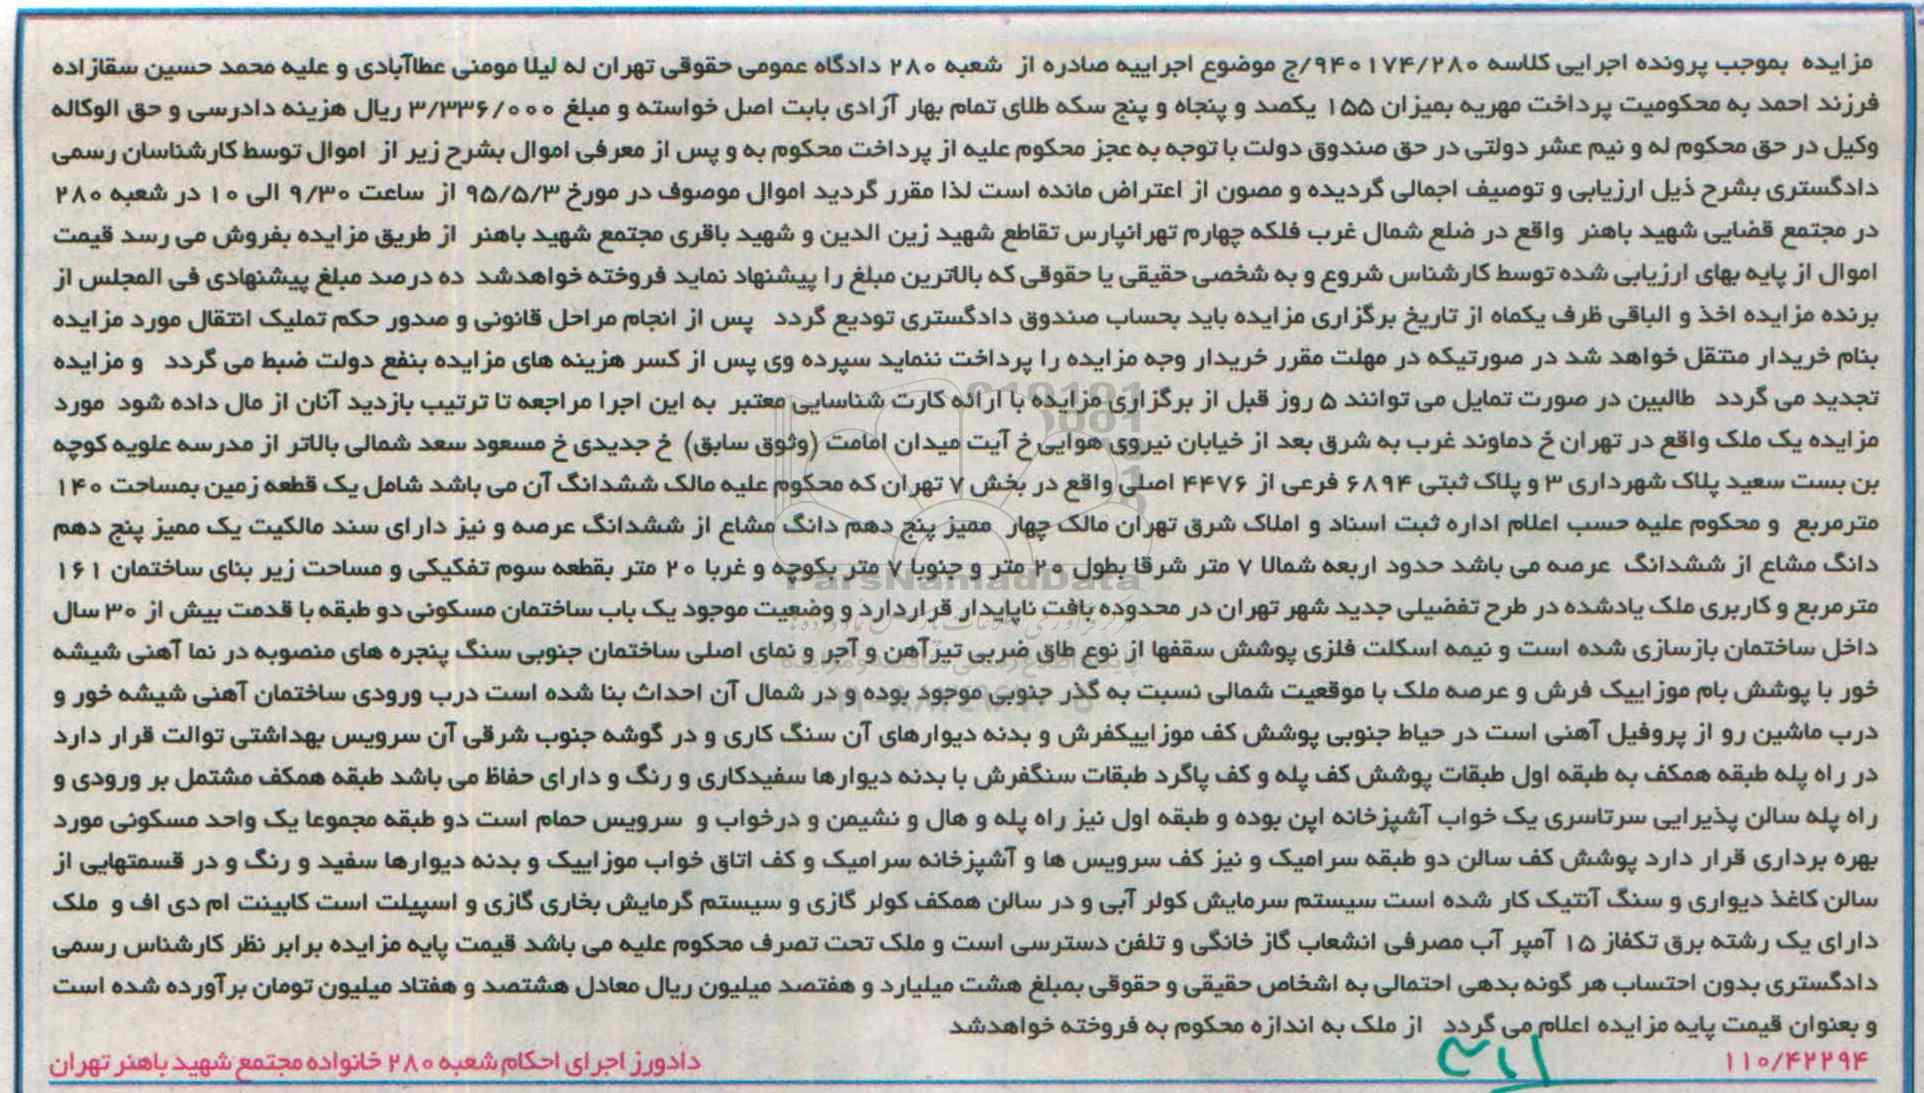 مزایده بموجب پرونده اجرایی کلاسه ۹۴۰۱۷۴/۲۸۰/ج موضوع اجراییه صادره از شعبه ۲۸۰ دادگاه عمومی حقوقی تهران له لیلا مومنی عطاآبادی و علیه محمد حسین سقازاده
فرزند احمد به محکومیت پرداخت مهریه بمیزان ۱۵۵ یکصد و پنجاه و پنج سکه طلای تمام بهار آزادی بابت اصل خواسته و مبلغ ۳/۳۳۶/۰۰۰ ریال هزینه دادرسی و حق الوکاله
وکیل در حق محکوم له و نیم عشر دولتی در حق صندوق دولت با توجه به عجز محکوم علیه از پرداخت محکوم به و پس از معرفی اموال بشرح زیر از اموال توسط کارشناسان رسمی
دادگستری بشرح ذیل ارزیابی و توصیف اجمالی گردیده و مصون از اعتراض مانده است لذا مقرر گردید اموال موصوف در مورخ ۹۵/۵/۳ از ساعت ۹/۳۰ الی ۱۰ در شعبه ۲۸۰
در مجتمع قضایی شهید باهنر واقع در ضلع شمال غرب فلکه چهارم تهرانپارس تقاطع شهید زین الدین و شهید باقری مجتمع شهید باهنر از طریق مزایده بفروش می رسد قیمت
اموال از پایه بهای ارزیابی شده توسط کارشناس شروع و به شخصی حقیقی یا حقوقی که بالاترین مبلغ را پیشنهاد نماید فروخته خواهدشد ده درصد مبلغ پیشنهادی فی المجلس از
برنده مزایده اخذ و الباقی ظرف یکماه از تاریخ برگزاری مزایده باید بحساب صندوق دادگستری تودیع گردد پس از انجام مراحل قانونی و صدور حکم تملیک انتقال مورد مزایده
بنام خریدار منتقل خواهد شد در صورتیکه در مهلت مقرر خریدار وجه مزایده را پرداخت ننماید سپرده وی پس از کسر هزینه های مزایده بنفع دولت ضبط می گردد و مزایده
تجدید می گردد طالبین در صورت تمایل می توانند ۵ روز قبل از برگزاری مزایده با ارائه کارت شناسایی معتبر به این اجرا مراجعه تا ترتیب بازدید آنان از مال داده شود مورد
مزایده یک ملک واقع در تهران خ دماوند غرب به شرق بعد از خیابان نیروی هوایی خ آیت میدان امامت (وثوق سابق) خ جدیدی خ مسعود سعد شمالی بالاتر از مدرسه علویه کوچه
بن بست سعید پلاک شهرداری ۳ و پلاک ثبتی ۶۸۹۴ فرعی از ۴۴۷۶ اصلی واقع در بخش ۷ تهران که محکوم علیه مالک ششدانگ آن می باشد شامل یک قطعه زمین بمساحت ۱۴۰
مترمربع و محکوم علیه حسب اعلام اداره ثبت اسناد و املاک شرق تهران مالک چهار ممیز پنج دهم دانگ مشاع از ششدانگ عرصه و نیز دارای سند مالکیت یک ممیز پنج دهم
دانگ مشاع از ششدانگ عرصه می باشد حدود اربعه شمالا ۷ متر شرقا بطول ۲۰ متر و جنوبا ۷ متر بکوچه و غربا ۲۰ متر بقطعه سوم تفکیکی و مساحت زیر بنای ساختمان ۱۶۱
مترمربع و کاربری ملک یادشده در طرح تفضیلی جدید شهر تهران در محدوده بافت ناپایدار قراردارد و وضعیت موجود یک باب ساختمان مسکونی دو طبقه با قدمت بیش از ۳۰ سال
داخل ساختمان بازسازی شده است و نیمه اسکلت فلزی پوشش سقفها از نوع طاق ضربی تیزآهن و آجر و نمای اصلی ساختمان جنوبی سنگ پنجره های منصوبه در نما آهنی شیشه
خور با پوشش بام موزاییک فرش و عرصه ملک با موقعیت شمالی نسبت به گذر جنوبی موجود بوده و در شمال آن احداث بنا شده است درب ورودی ساختمان آهنی شیشه خور و
درب ماشین رو از پروفیل آهنی است در حیاط جنوبی پوشش کف موزاییکفرش و بدنه دیوارهای آن سنگ کاری و در گوشه جنوب شرقی آن سرویس بهداشتی توالت قرار دارد
در راه پله طبقه همکف به طبقه اول طبقات پوشش کف پله و کف پاگرد طبقات سنگفرش با بدنه دیوارها سفیدکاری و رنگ و دارای حفاظ می باشد طبقه همکف مشتمل بر ورودی و
راه پله سالن پذیرایی سرتاسری یک خواب آشپزخانه اپن بوده و طبقه اول نیز راه پله و هال و نشیمن و درخواب و سرویس حمام است دو طبقه مجموعا یک واحد مسکونی مورد
بهره برداری قرار دارد پوشش کف سالن دو طبقه سرامیک و نیز کف سرویس ها و آشپزخانه سرامیک و کف اتاق خواب موزاییک و بدنه دیوارها سفید و رنگ و در قسمتهایی از
سالن کاغذ دیواری و سنگ آنتیک کار شده است سیستم سرمایش کولر آبی و در سالن همکف کولر گازی و سیستم گرمایش بخاری گازی و اسپیلت است کابینت ام دی اف و ملک
دارای یک رشته برق تکفاز ۱۵ آمپر آب مصرفی انشعاب گاز خانگی و تلفن دسترسی است و ملک تحت تصرف محکوم علیه می باشد قیمت پایه مزایده برابر نظر کارشناس رسمی
دادگستری بدون احتساب هر گونه بدهی احتمالی به اشخاص حقیقی و حقوقی بمبلغ هشت میلیارد و هفتصد میلیون ریال معادل هشتصد و هفتاد میلیون تومان برآورده شده است
و بعنوان قیمت پایه مزایده اعلام می گردد از ملک به اندازه محکوم به فروخته خواهدشد
۱۱۰/۴۲۲۹۴
دادورز اجرای احکام شعبه ۲۸۰ خانواده مجتمع شهید باهنر تهران
ParsNamadData